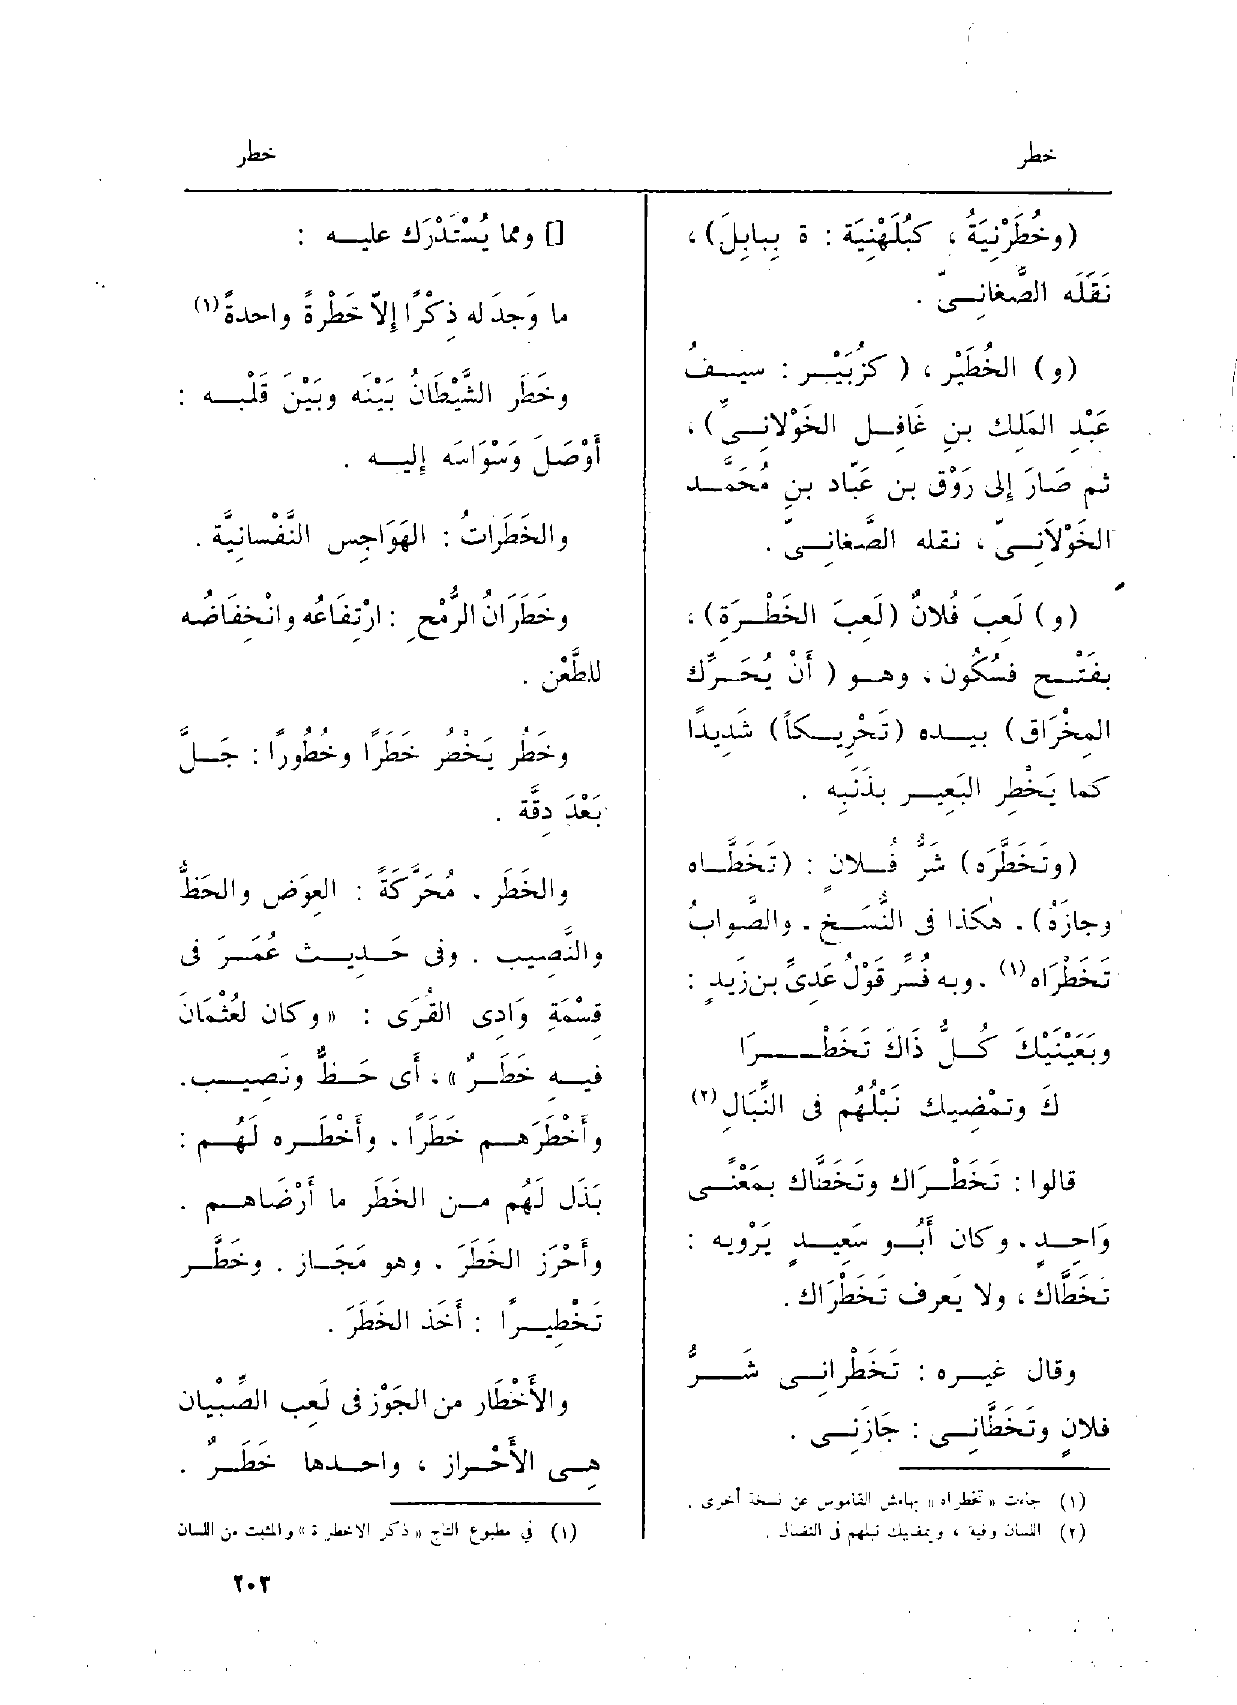 خطر
خطر
(وخُطَرْنِيَةُ ، كبُلَهْنِيَة : ة بِبابِلَ) ،
نَقَلَه الصَّغانِىّ .
(و) الخُطَيْر ، ( كزُبَيْر : سيفُ
عَبْد المَلِك بنِ غَافِل الخَوْلانِىِّ) ،
ثم صَارَ إِلى رَوْق بن عَبّاد بنِ مُحَمَّد
الخَوْلاَنِىّ ، نقله الصَّغانِىّ .
(و) لَعِبَ فُلانٌ (لَعِبَ الخَطْرَةِ) ،
بفَتْح فسُكُون ، وهو ( أَنْ يُحَرِّك
المِخْرَاق) بيده (تَحْرِيكاً) شَدِيدًا
كما يَخْطِر البَعِير بذَنَبِه .
(وتَخَطَّرَه) شَرُّ فُلانٍ : (تَخَطَّاه
وجازَهُ) . هكذا فى النُّسَخ . والصَّوابُ
تَخَطْرَاه (١) . وبه فُسِّر قَوْلُ عَدِىِّ بن زَيدٍ :
وبَعَيْنَيْكَ كُلُّ ذَاكَ تَخَطْرَا
كَ وتمْضِيك نَبْلُهُم فى النِّبَالِ (٢)
قالوا : تَخَطْرَاك وتَخَطَّاك بمَعْنًى
وَاحِدٍ . وكان أَبُو سَعِيدٍ يَرْوِيه :
تَخَطَّاك ، ولا يَعرِف تَخَطْرَاك .
وقال غيره : تَخَطْرانِى شَرُّ
فلانٍ وتَخَطَّانِى : جَازَنِى .
(١) جاءت « تخطراه » بهامش القاموس عن نسخة أخرى .
(٢) اللسان وفيه ، وبمضيك نبلهم فى النضال .
[] ومما يُسْتَدْرَك عليه :
ما وَجدَ له ذِكْرًا إِلاّ خَطْرةً واحدةً (١)
وخَطَر الشَّيْطَانُ بَيْنَه وبَيْنَ قَلْبه :
أَوْصَلَ وَسْوَاسَه إليه .
والخَطَرَاتُ : الهَوَاجِس النَّفْسَانِيَّة .
وخَطَرَانُ الرُّمْحِ : ارْتِفَاعُه وانْخِفَاضُه
للطَّعْن .
وخَطُر يَخْطُر خَطَرًا وخُطُورًا : جَلَّ
بَعْدَ دِقَّة .
والخَطَر . مُحَرَّكَةً : العِوَض والحَظُّ
والنَّصِيب . وفى حَدِيث عُمَرَ فى
قِسْمَةِ وَادِى القُرَى : « وكان لعُثْمَانَ
فيه خَطَرٌ » ، أَى حَظٌّ ونَصِيب .
وأَخْطَرَهم خَطَرًا . وأَخْطَره لَهُم :
بَذَل لَهُم من الخَطَر ما أَرْضَاهم .
وأَحْرَز الخَطَرَ . وهو مَجَاز . وخَطَّر
تَخْطِيرًا : أَخَذ الخَطَرَ .
والأَخْطَار من الجَوْز فى لَعِب الصِّبْيان
هى الأَحْراز ، واحدها خَطَرٌ .
(١) فى مطبوع التاج « ذكر الاخطرة » والمثبت من اللسان
٢٠٣